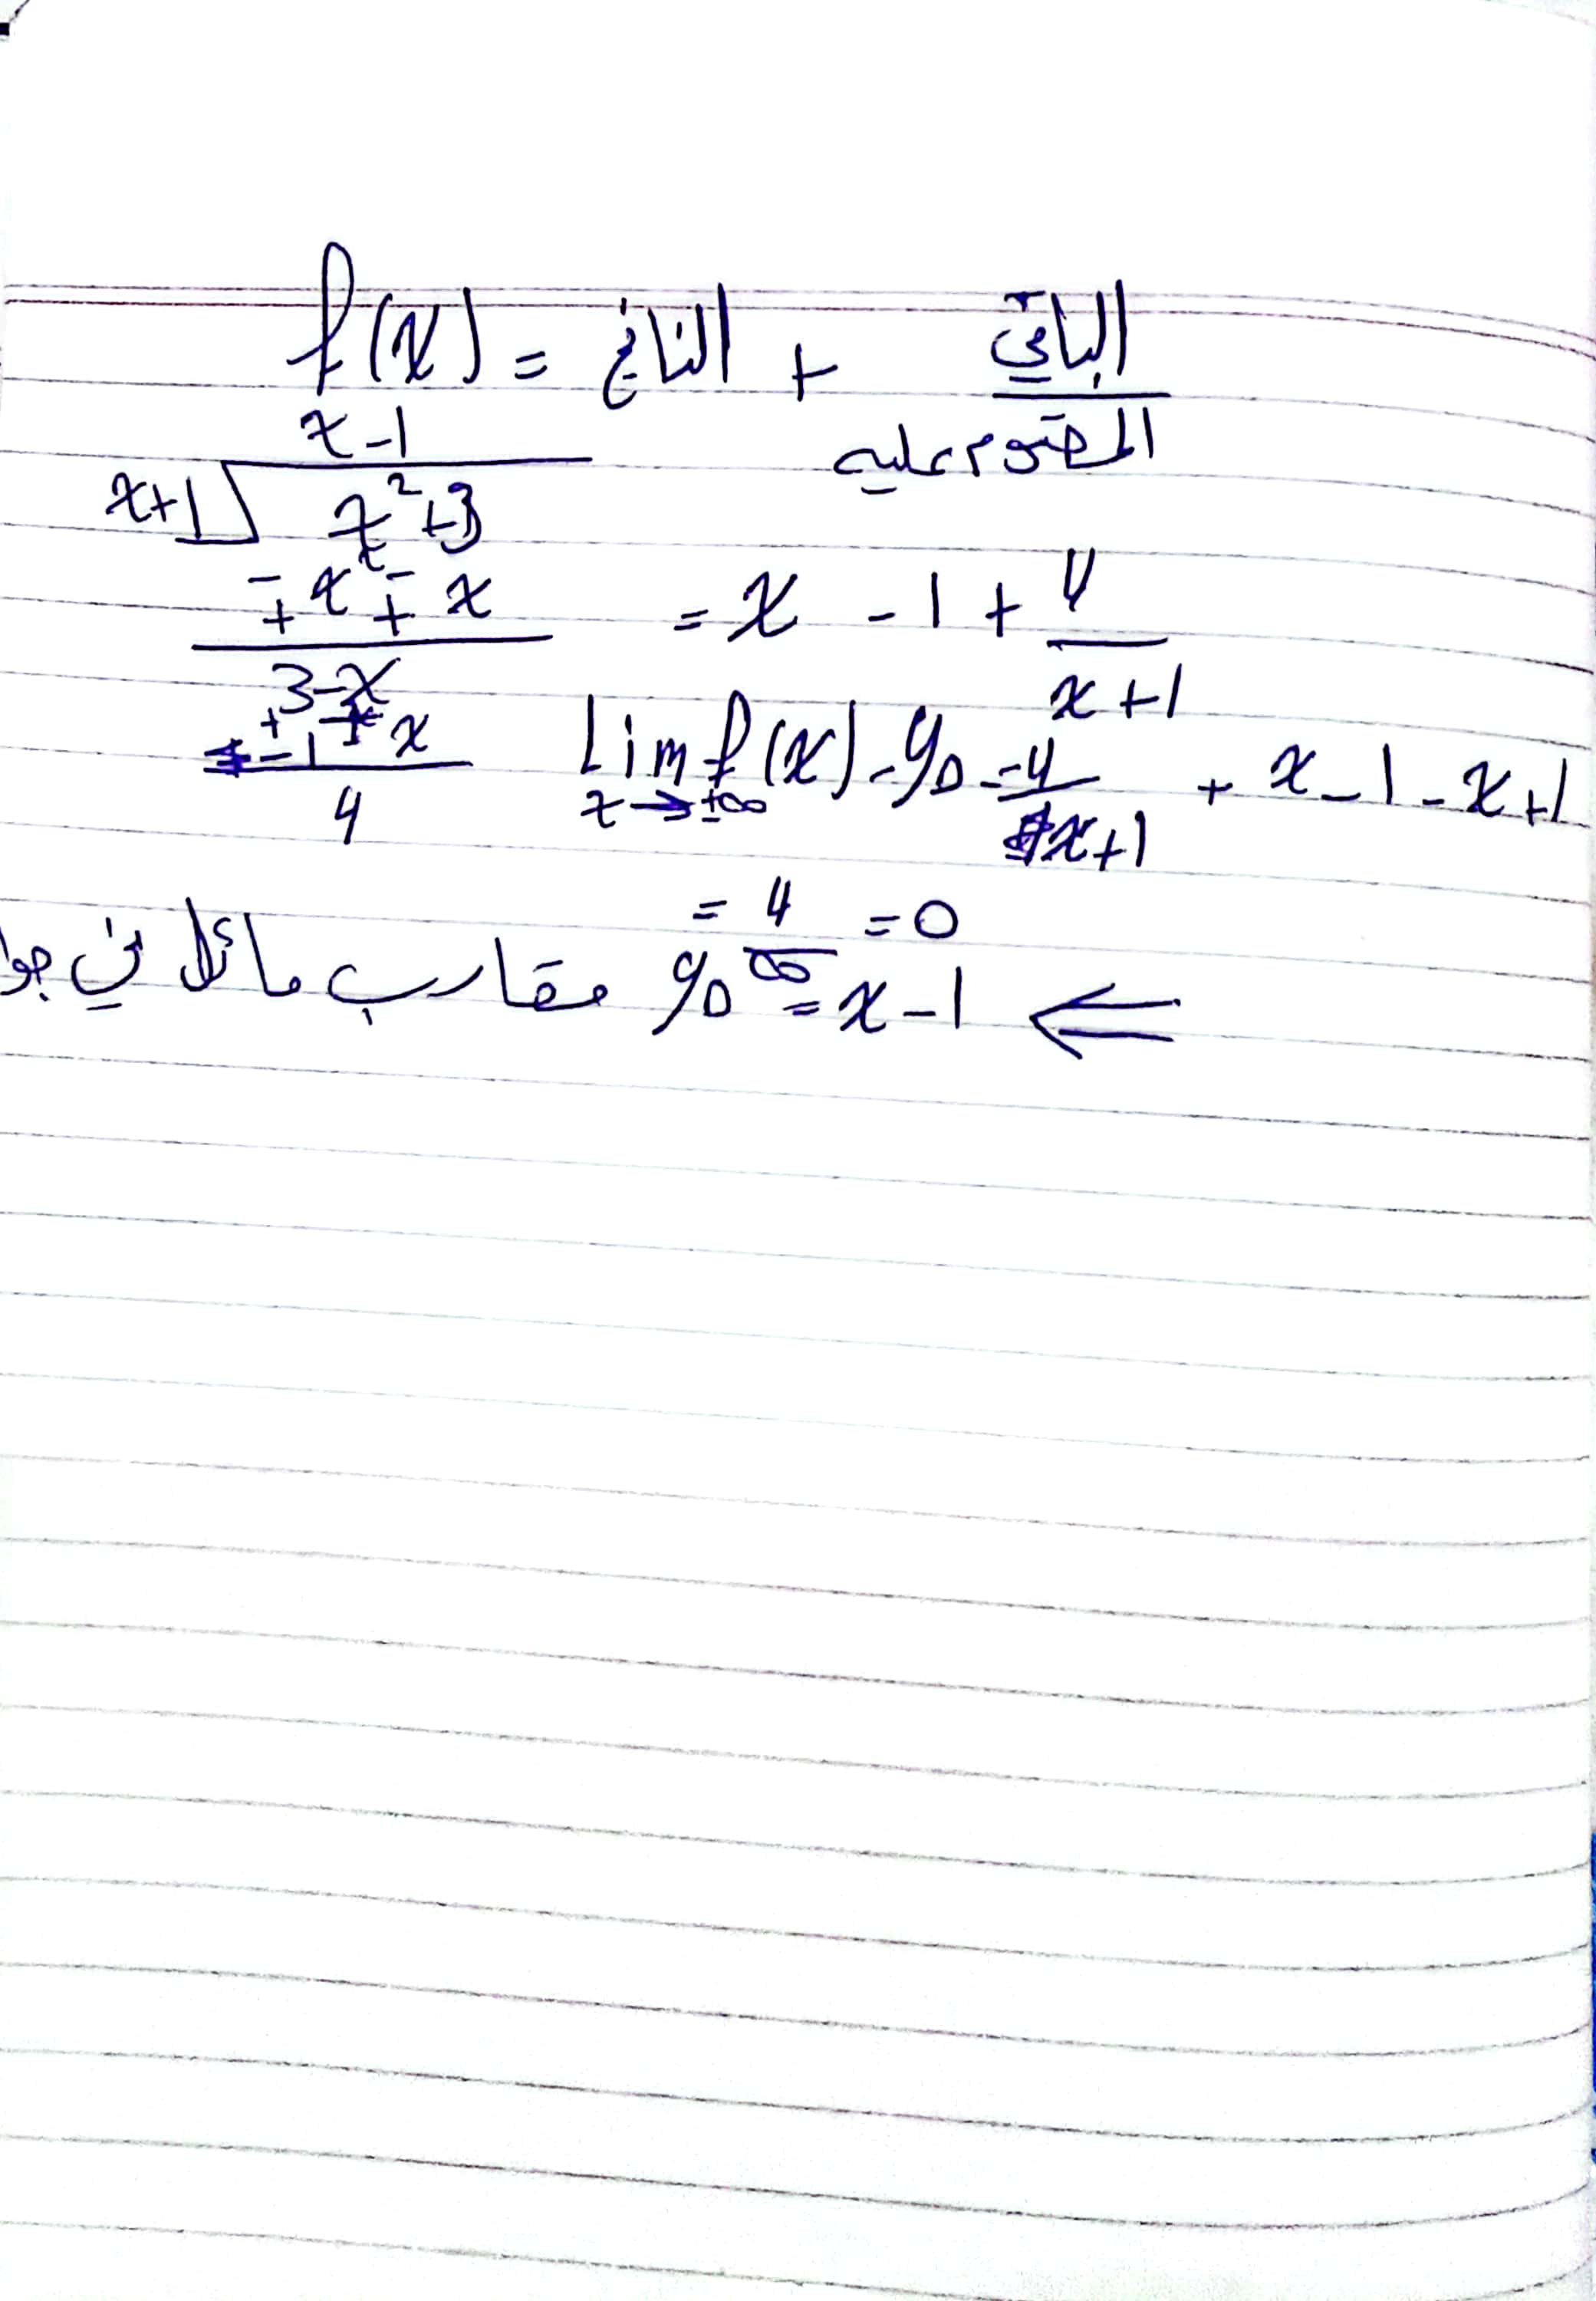 f(x) = الناتج + الباقي / المقسوم عليه
x-1
x+1 x²+3
-+ x² -+ x
3-x
+-1 -+ x
4
= x - 1 + 4 / x+1
Lim x→±∞ f(x) - y_D = 4 / x+1 + x-1-x+1
= 4/∞ = 0
⇐ y_D = x-1 مقارب مائل في